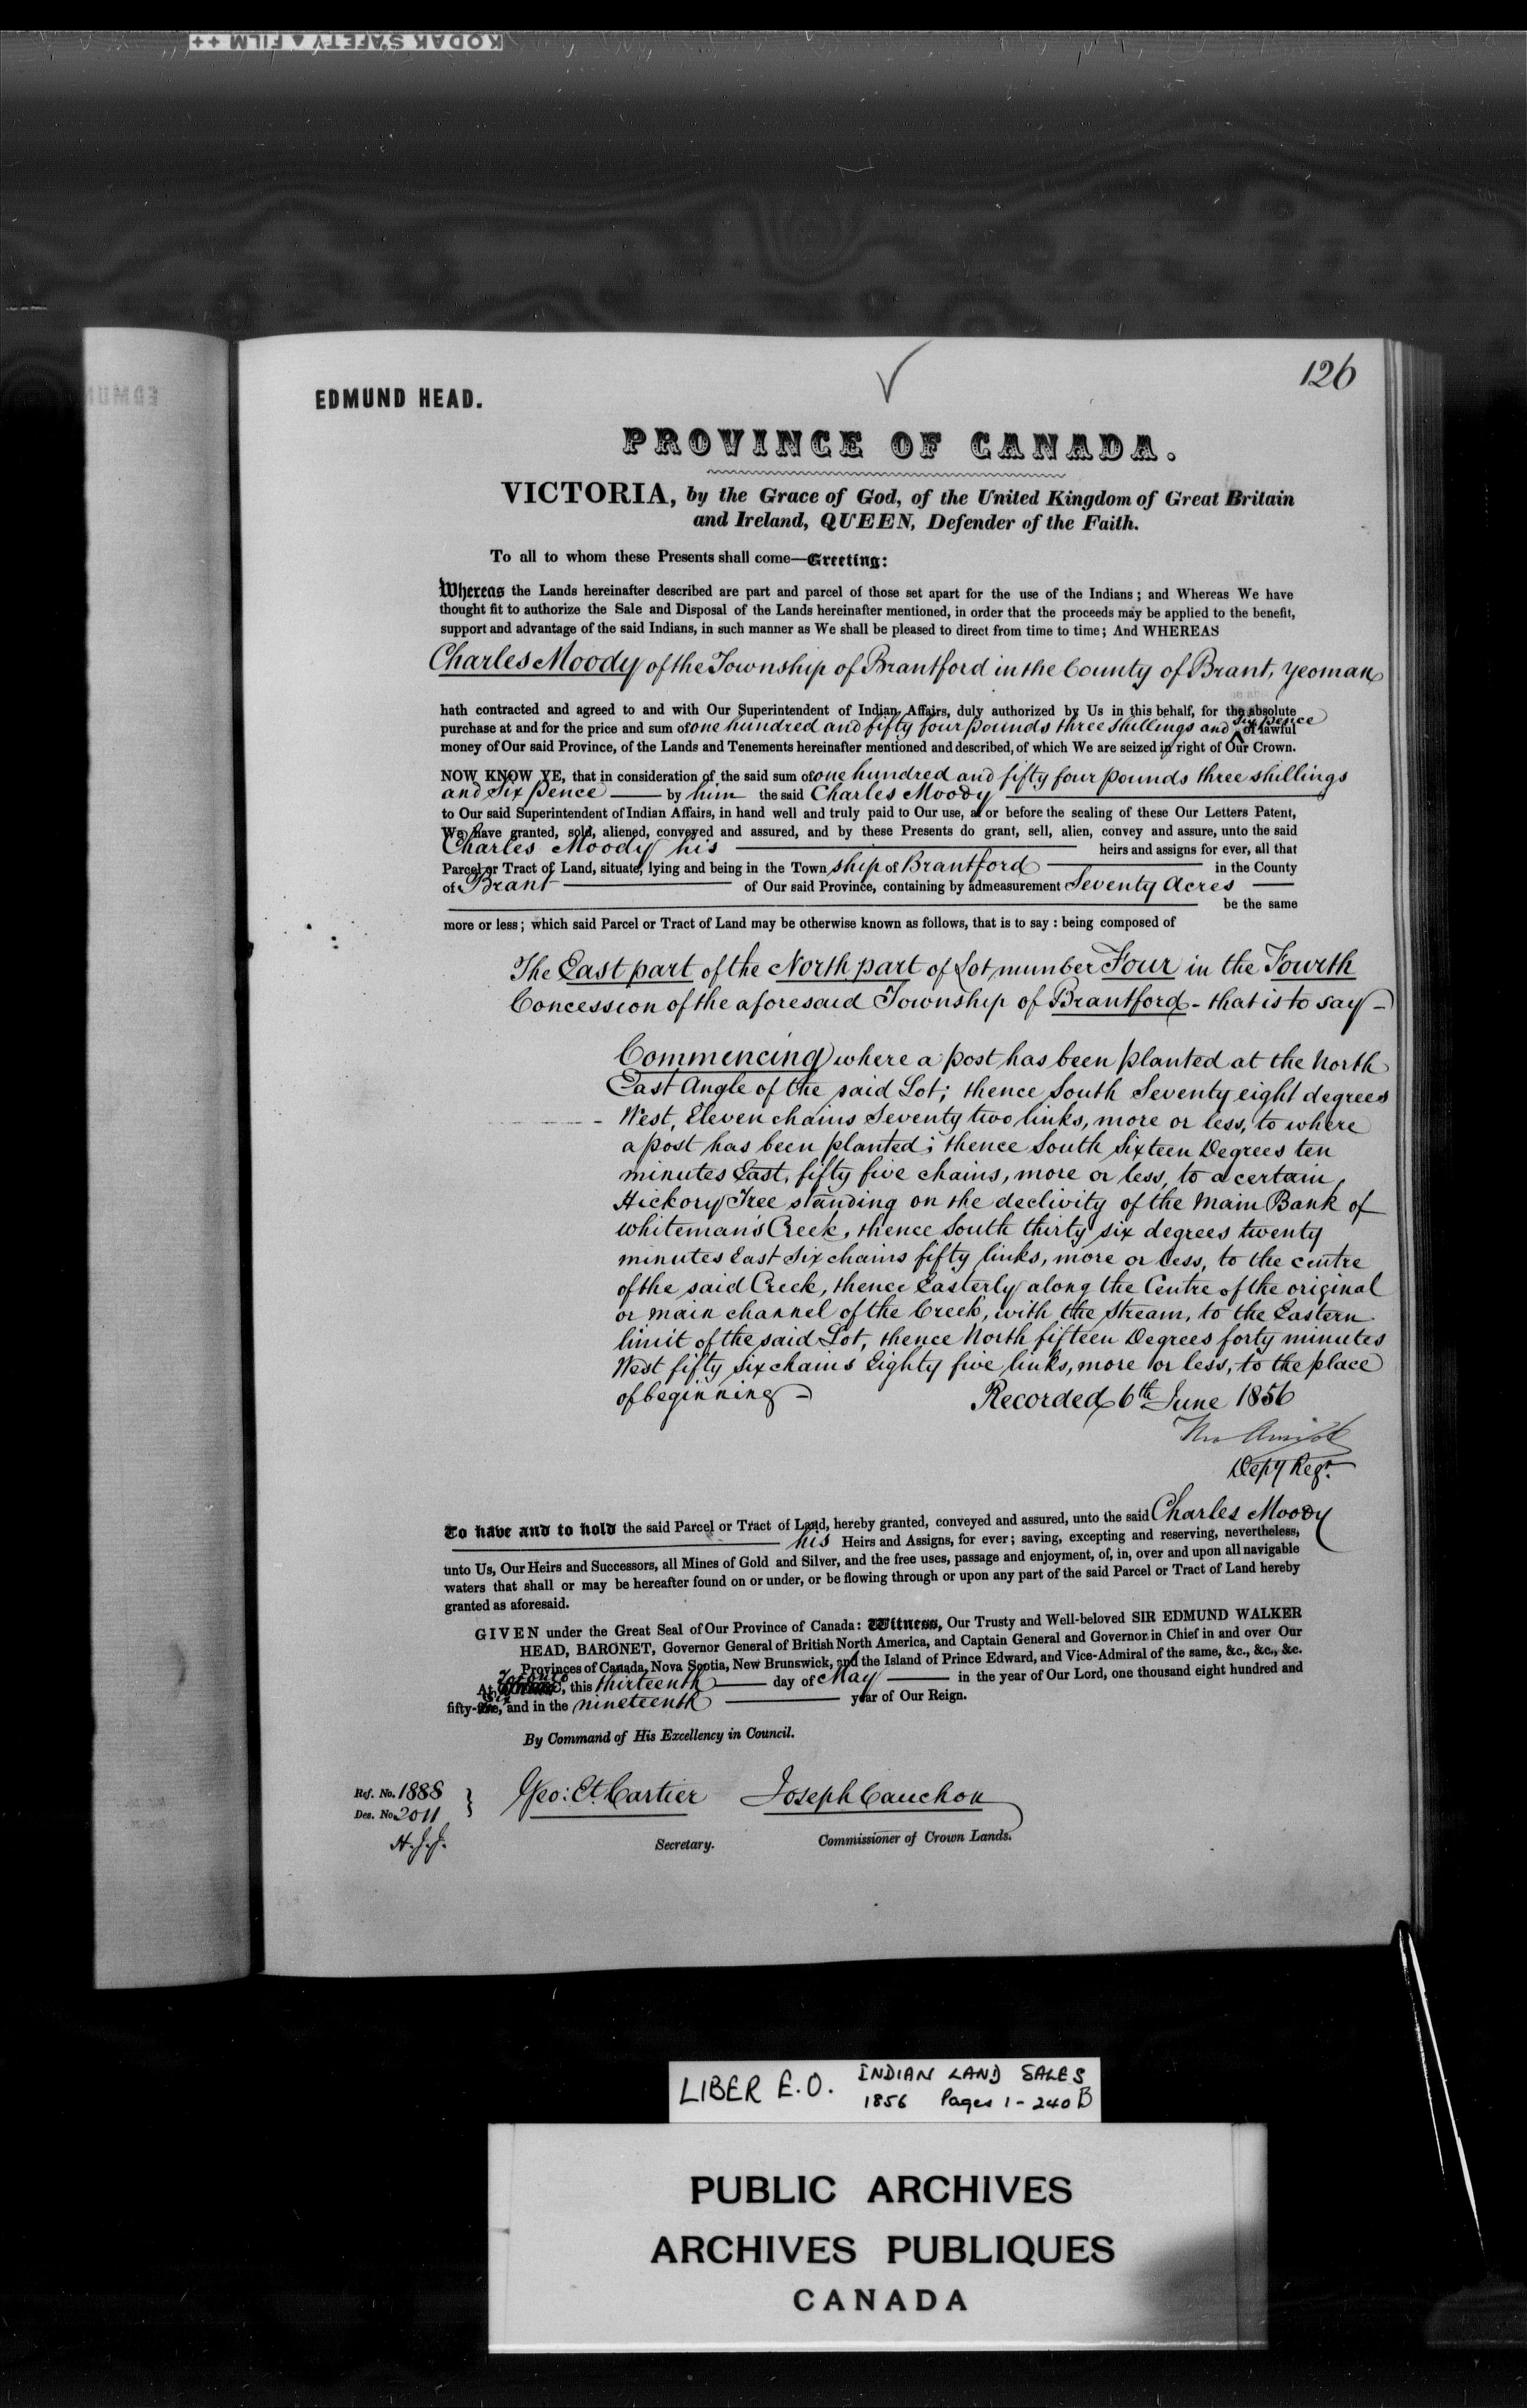 KODAK SAFETY ▲ FILM ++
126
EDMUND HEAD.
PROVINCE OF CANADA.
VICTORIA, by the Grace of God, of the United Kingdom of Great Britain
and Ireland, QUEEN, Defender of the Faith.
To all to whom these Presents shall come—Greeting:
Whereas the Lands hereinafter described are part and parcel of those set apart for the use of the Indians; and Whereas We have
thought fit to authorize the Sale and Disposal of the Lands hereinafter mentioned, in order that the proceeds may be applied to the benefit,
support and advantage of the said Indians, in such manner as We shall be pleased to direct from time to time; And WHEREAS
Charles Moody of the Township of Brantford in the County of Brant, yeoman
hath contracted and agreed to and with Our Superintendent of Indian Affairs, duly authorized by Us in this behalf, for the absolute
purchase at and for the price and sum of one hundred and fifty four pounds three shillings and six pence of lawful
money of Our said Province, of the Lands and Tenements hereinafter mentioned and described, of which We are seized in right of Our Crown.
NOW KNOW YE, that in consideration of the said sum of one hundred and fifty four pounds three shillings
and Six pence by him the said Charles Moody
to Our said Superintendent of Indian Affairs, in hand well and truly paid to Our use, at or before the sealing of these Our Letters Patent,
We have granted, sold, aliened, conveyed and assured, and by these Presents do grant, sell, alien, convey and assure, unto the said
Charles Moody his heirs and assigns for ever, all that
Parcel or Tract of Land, situate, lying and being in the Town ship of Brantford in the County
of Brant of Our said Province, containing by admeasurement Seventy Acres
be the same
more or less; which said Parcel or Tract of Land may be otherwise known as follows, that is to say: being composed of
The East part of the North part of Lot number Four in the Fourth
Concession of the aforesaid Township of Brantford - that is to say -
Commencing where a post has been planted at the North
East Angle of the said Lot; thence South Seventy eight degrees
West, Eleven chains Seventy two links, more or less, to where
a post has been planted; thence South Sixteen Degrees ten
minutes East, fifty five chains, more or less, to a certain
Hickory Tree standing on the declivity of the Main Bank of
Whiteman's Creek, thence South thirty six degrees twenty
minutes East Six chains fifty links, more or less, to the centre
of the said Creek, thence Easterly along the Centre of the original
or main channel of the Creek, with the Stream, to the Eastern
limit of the said Lot, thence North fifteen Degrees forty minutes
West fifty six chains Eighty five links, more or less, to the place
of beginning -
Recorded 6th June 1856
Depy Regr.
To have and to hold the said Parcel or Tract of Land, hereby granted, conveyed and assured, unto the said Charles Moody
his Heirs and Assigns, for ever; saving, excepting and reserving, nevertheless,
unto Us, Our Heirs and Successors, all Mines of Gold and Silver, and the free uses, passage and enjoyment, of, in, over and upon all navigable
waters that shall or may be hereafter found on or under, or be flowing through or upon any part of the said Parcel or Tract of Land hereby
granted as aforesaid.
GIVEN under the Great Seal of Our Province of Canada: Witness, Our Trusty and Well-beloved SIR EDMUND WALKER
HEAD, BARONET, Governor General of British North America, and Captain General and Governor in Chief in and over Our
Provinces of Canada, Nova Scotia, New Brunswick, and the Island of Prince Edward, and Vice-Admiral of the same, &c., &c., &c.
At Toronto, this thirteenth day of May in the year of Our Lord, one thousand eight hundred and
fifty-six, and in the nineteenth year of Our Reign.
By Command of His Excellency in Council.
Ref. No. 1888
Des. No. 2011
H.J.J.
Geo: Et. Cartier Joseph Cauchon
Secretary. Commissioner of Crown Lands.
LIBER E.O. INDIAN LAND SALES
1856 Pages 1-240B
PUBLIC ARCHIVES
ARCHIVES PUBLIQUES
CANADA